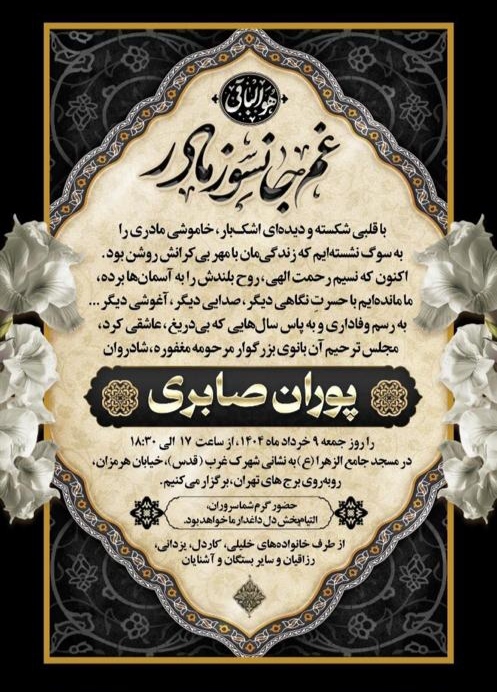 هوالباقی
غم جانسوز مادر
با قلبی شکسته و دیده‌ای اشک‌بار، خاموشی مادری را
به سوگ نشسته‌ایم که زندگی‌مان با مهر بی‌کرانش روشن بود.
اکنون که نسیم رحمت الهی، روح بلندش را به آسمان‌ها برده،
ما مانده‌ایم با حسرتِ نگاهی دیگر، صدایی دیگر، آغوشی دیگر ...
به رسم وفاداری و به پاس سال‌هایی که بی‌دریغ، عاشقی کرد،
مجلس ترحیم آن بانوی بزرگوار مرحومه مغفوره، شادروان
پوران صابری
را روز جمعه ۹ خرداد ماه ۱۴۰۴، از ساعت ۱۷ الی ۱۸:۳۰
در مسجد جامع الزهرا (ع) به نشانی شهرک غرب (قدس)، خیابان هرمزان،
روبه‌روی برج‌های تهران، برگزار می‌کنیم.
حضور گرم شما سروران،
التیام‌بخش دل داغدار ما خواهد بود.
از طرف خانواده‌های خلیلی، کاردل، یزدانی،
رزاقیان و سایر بستگان و آشنایان